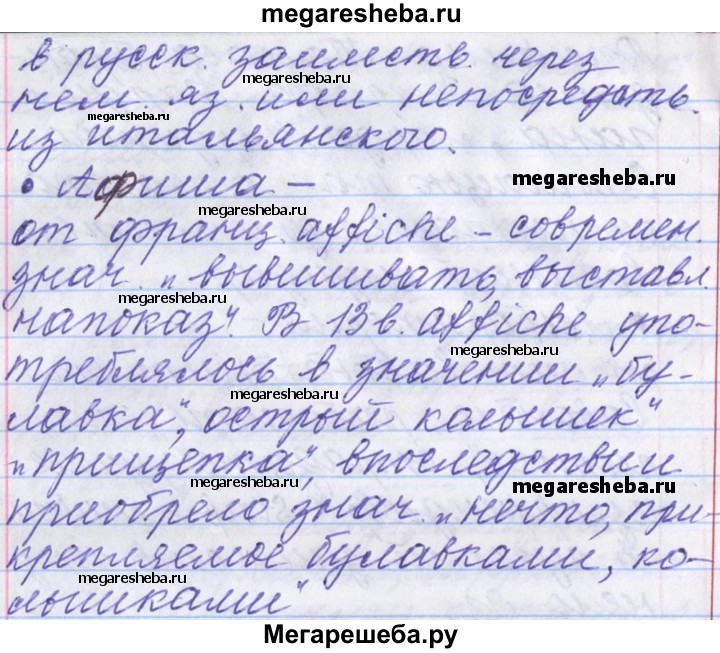 megaresheba.ru
в русск. заимств. через
megaresheba.ru
нем. яз. или непосредств.
megaresheba.ru
из итальянского.
• Афиша –
megaresheba.ru
megaresheba.ru
от франц. affiche – современ.
знач. „вывешивать, выставл.
megaresheba.ru
напоказ“. В 13 в. affiche упо-
megaresheba.ru
треблялось в значении „бу-
megaresheba.ru
лавка“, острый колышек“
„прищепка“, впоследствии
megaresheba.ru
megaresheba.ru
приобрело знач. „нечто, при-
крепляемое булавками, ко-
megaresheba.ru
лышками“
Мегарешеба.ру